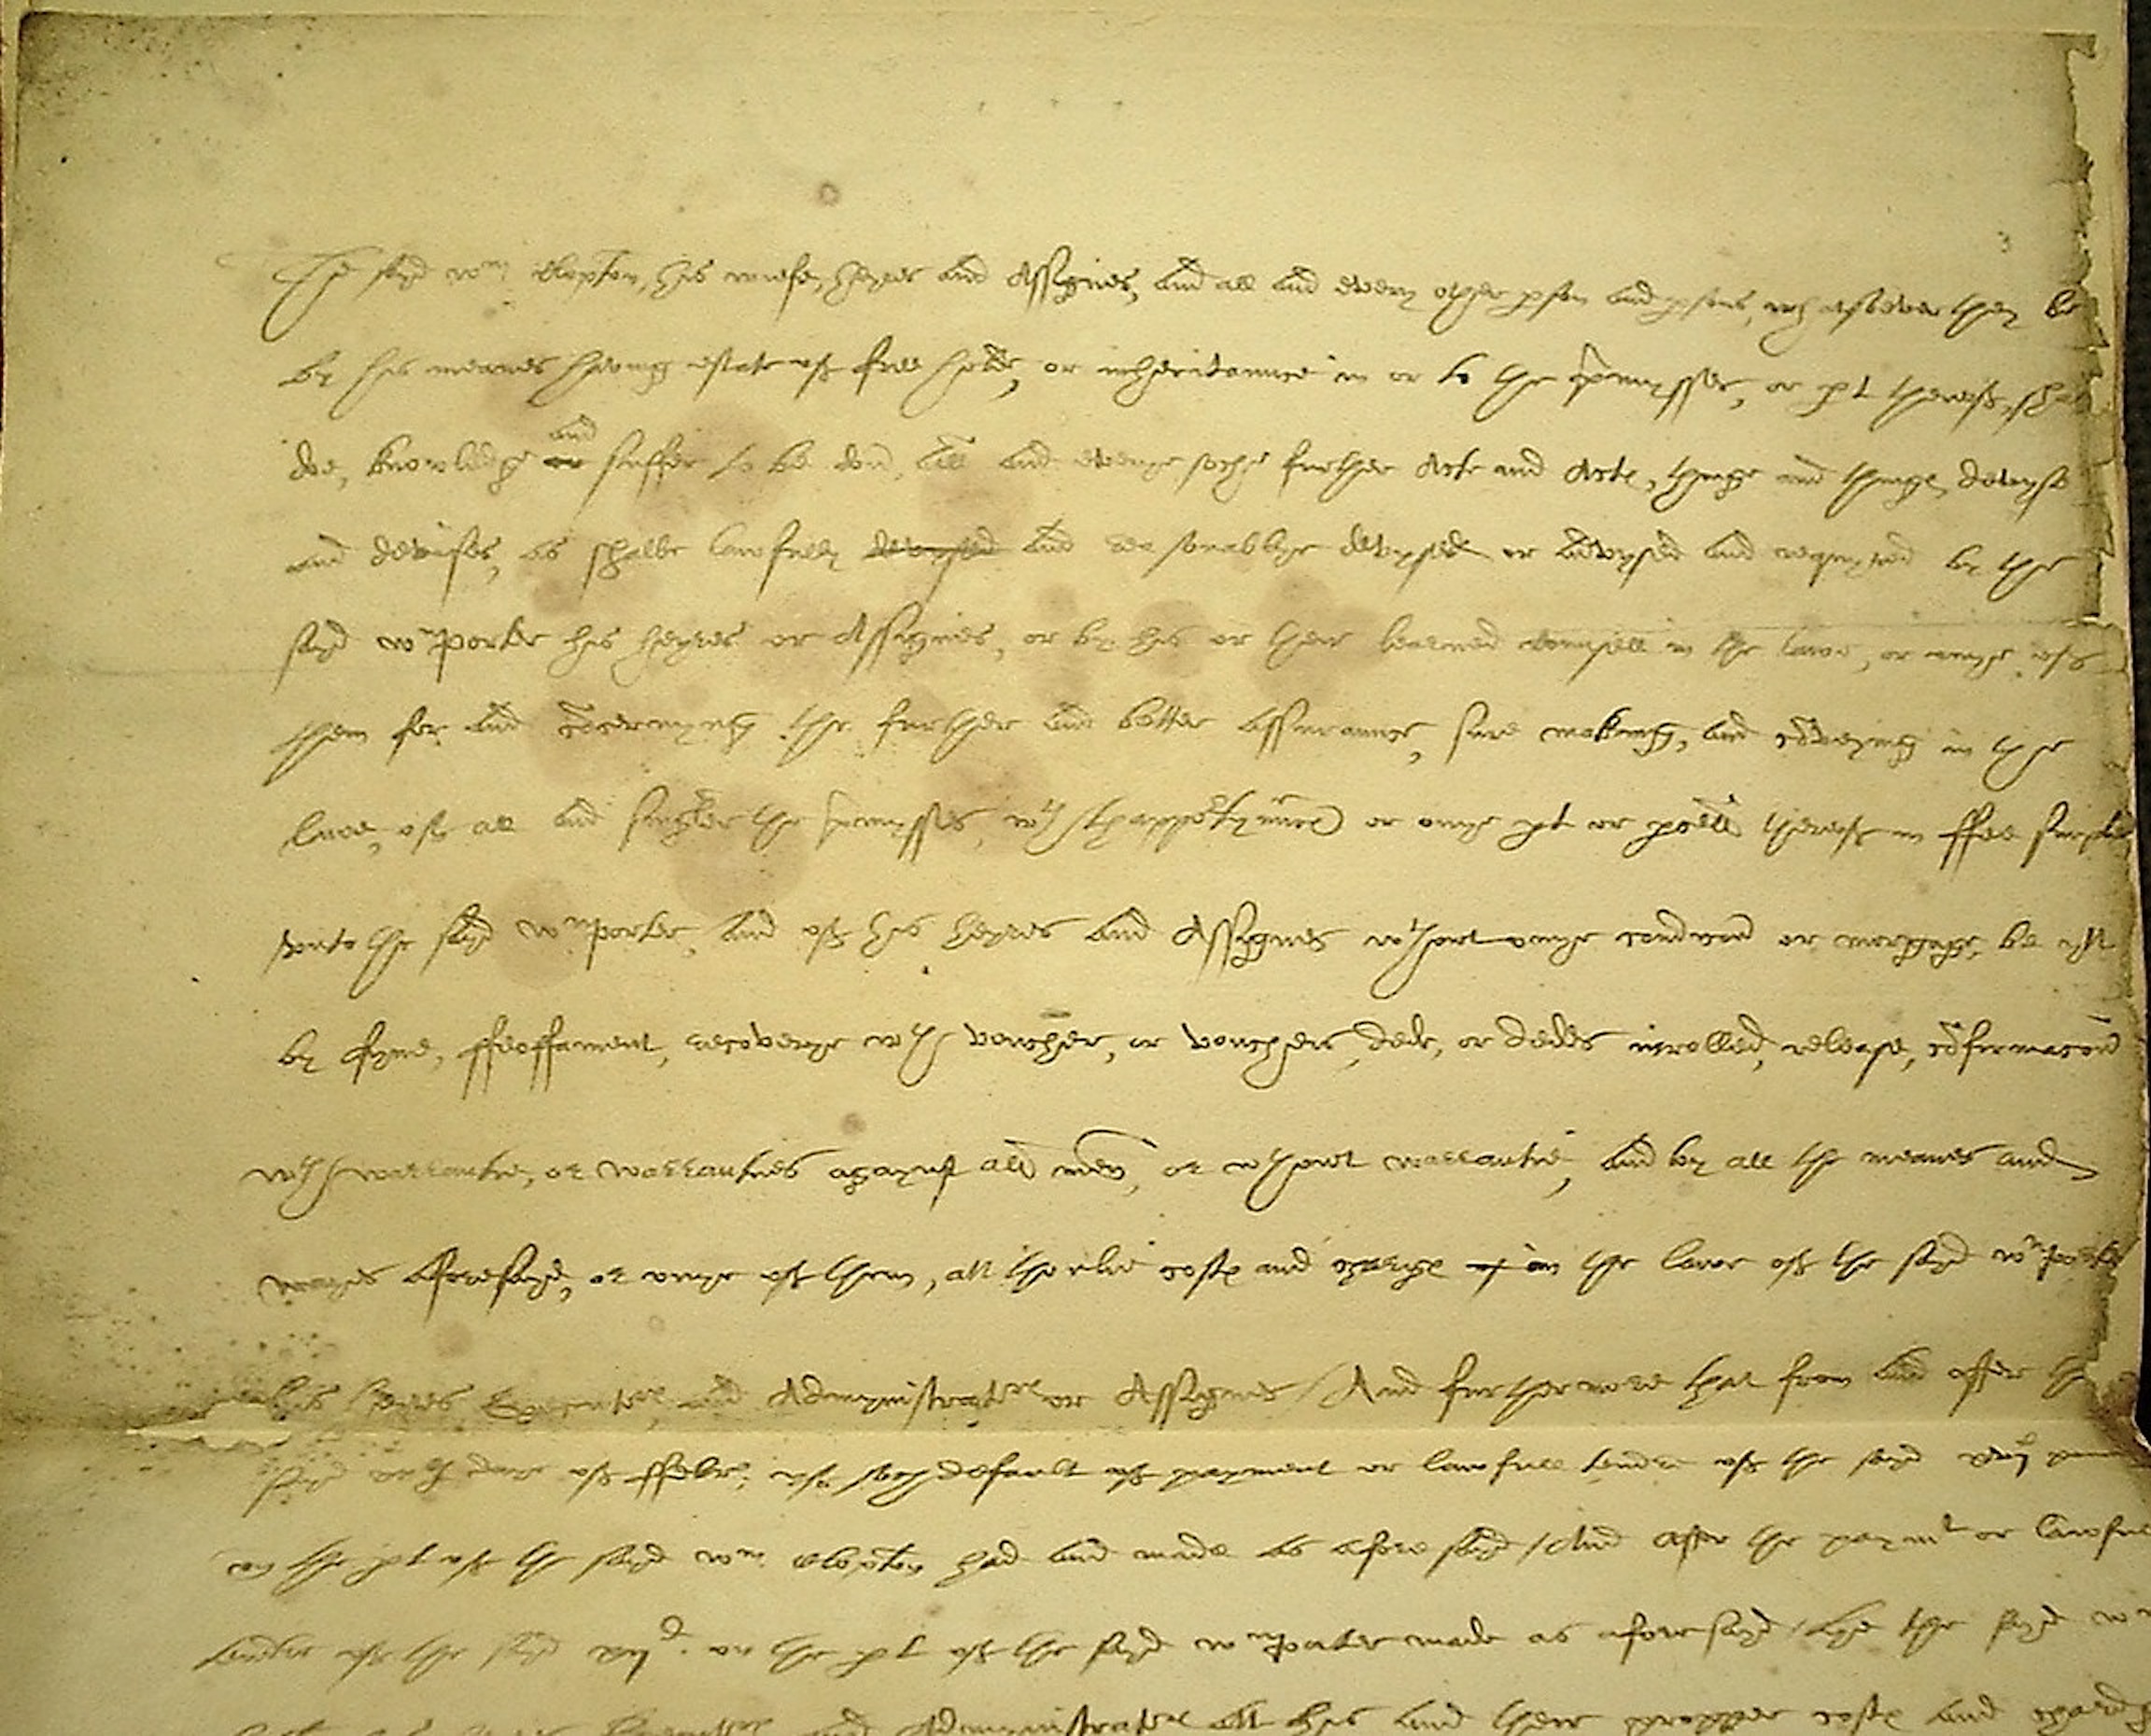 The sayd Wm Clopton, his wiefe, heyres and Assignes, and all and every other pson and psons, whatsoever they be
by his meanes having estate off free holde, or inheritaunce in or to the pmysses, or pt thereoff, sha
doe, knowledge or and suffer to be don, all and everye soche further Acte and Acte, thinge and thinge, devyse
and devises, as shalbe lawfully devysed and reasonablye devysed or advysed and requyred by the
sayd Wm Porter his heyres or Assignes, or by his or their learned counsell in the lawe, or anye off
them for and concernyng the further and better assuraunce, sure making, and coveying in the
lawe, off all and singler the pmysses, wth thapptyñnce or anye pt or pcell thereoff in ffee simple
unto the sayd Wm Porter, and off his heyres and Assignes wthout anye condicon or morgage, be ytt
by fyne, ffeoffament, recoverye wth voucher, or vouchers, dede, or dedes inrolled, release, cofirmacon
wth warrantie, or warranties agaynst all men, or wthout warrantie, and by all the meanes and
wayes aforesayd, or anye off them, att the onlie coste and charge in the lawe off the sayd Wm Porter
his heyres Executors and Administrators or Assignes / And furthermore that from and after th
sayd daye off ffebr, off soch default off payment or lawfull tender off the sayd
on the pt off the sayd Wm Clopton had and made as afore sayd / And after the paymt or lawfu
tender off the sayd xijd. on the pt off the sayd Wm Porter made as aforesayd / the sayd W
heyres Executors and Administrators att his and their propper coste and